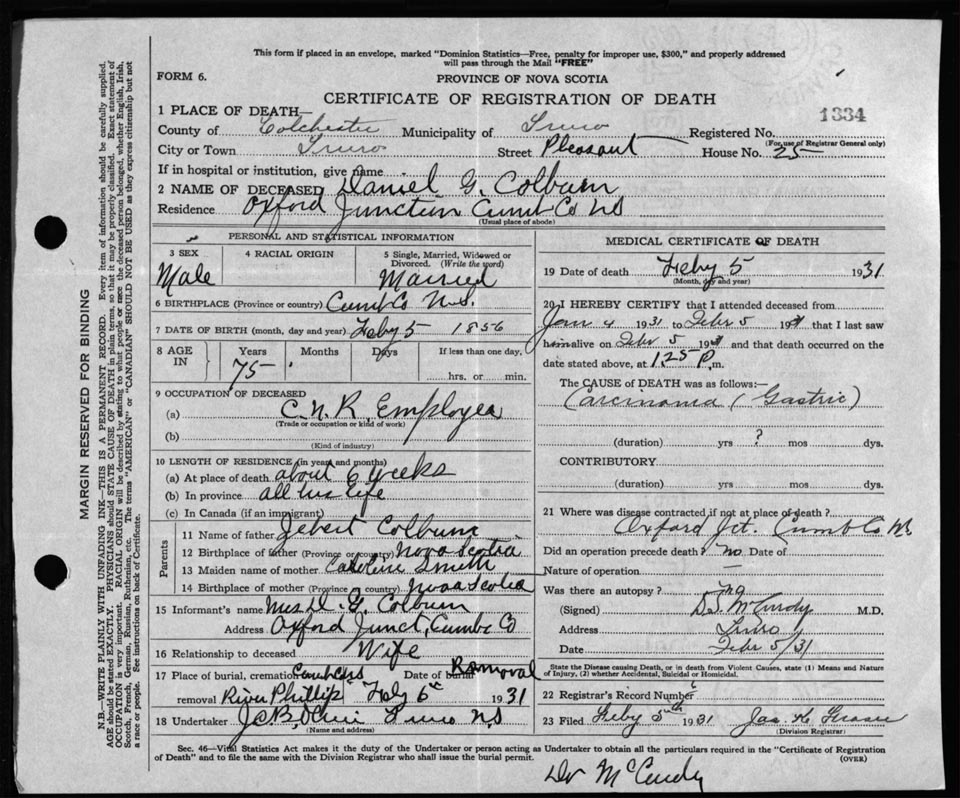 This form if placed in an envelope, marked "Dominion Statistics—Free, penalty for improper use, $300," and properly addressed
will pass through the Mail "FREE"
FORM 6.
PROVINCE OF NOVA SCOTIA
CERTIFICATE OF REGISTRATION OF DEATH
1334
1 PLACE OF DEATH—
County of Colchester Municipality of Truro Registered No.
(For use of Registrar General only)
City or Town Truro Street Pleasant House No. 25
If in hospital or institution, give name
2 NAME OF DECEASED Daniel G. Colburn
Residence Oxford Junction Cumb Co NS
(Usual place of abode)
PERSONAL AND STATISTICAL INFORMATION
3 SEX
4 RACIAL ORIGIN
5 Single, Married, Widowed or
Divorced. (Write the word)
Male
Married
6 BIRTHPLACE (Province or country) Cumb Co N.S.
7 DATE OF BIRTH (month, day and year) Feby 5 1856
8 AGE IN
Years Months Days If less than one day,
75
hrs. or min.
9 OCCUPATION OF DECEASED
(a) C.N.R. Employee
(Trade or occupation or kind of work)
(b)
(Kind of industry)
10 LENGTH OF RESIDENCE (in years and months)
(a) At place of death about 6 weeks
(b) In province all his life
(c) In Canada (if an immigrant)
Parents
11 Name of father Colburn
12 Birthplace of father (Province or country) Nova Scotia
13 Maiden name of mother Caroline Smith
14 Birthplace of mother (Province or country) Nova Scotia
15 Informant's name Mrs D. G. Colburn
Address Oxford Junct, Cumb Co
16 Relationship to deceased Wife
17 Place of burial, cremation or Date of burial Removal
removal River Phillip Feby 6th 1931
18 Undertaker Truro NS
(Name and address)
MEDICAL CERTIFICATE OF DEATH
19 Date of death Feby 5 1931
(Month, day and year)
20 I HEREBY CERTIFY that I attended deceased from
Jan 4 1931 to Febr 5 1931 that I last saw
him alive on Febr 5 1931 and that death occurred on the
date stated above, at 1.25 P. m.
The CAUSE of DEATH was as follows:—
Carcinoma (Gastric)
(duration) yrs ? mos dys.
CONTRIBUTORY
(duration) yrs mos dys.
21 Where was disease contracted if not at place of death?
Oxford Jct. Cumb Co NS
Did an operation precede death? no Date of
Nature of operation —
Was there an autopsy? no
(Signed) McCurdy M.D.
Address Truro
Date Febr 5/31
State the Disease causing Death, or in death from Violent Causes, state (1) Means and Nature
of Injury, (2) whether Accidental, Suicidal or Homicidal.
22 Registrar's Record Number
23 Filed Feby 5th 1931 Jas
(Division Registrar)
Sec. 46—Vital Statistics Act makes it the duty of the Undertaker or person acting as Undertaker to obtain all the particulars required in the "Certificate of Registration
of Death" and to file the same with the Division Registrar who shall issue the burial permit.
(OVER)
Dr McCurdy
MARGIN RESERVED FOR BINDING
N.B.—WRITE PLAINLY WITH UNFADING INK—THIS IS A PERMANENT RECORD. Every item of information should be carefully supplied.
AGE should be stated EXACTLY. PHYSICIANS should STATE CAUSE OF DEATH in plain terms, so that it may be properly classified. Exact statement of
OCCUPATION is very important. RACIAL ORIGIN will be described by stating to what people or race the deceased person belonged, whether English, Irish,
Scotch, French, German, Russian, Ruthenian, etc. The terms "AMERICAN" or "CANADIAN" SHOULD NOT BE USED as they express citizenship but not
a race or people. See instructions on back of Certificate.